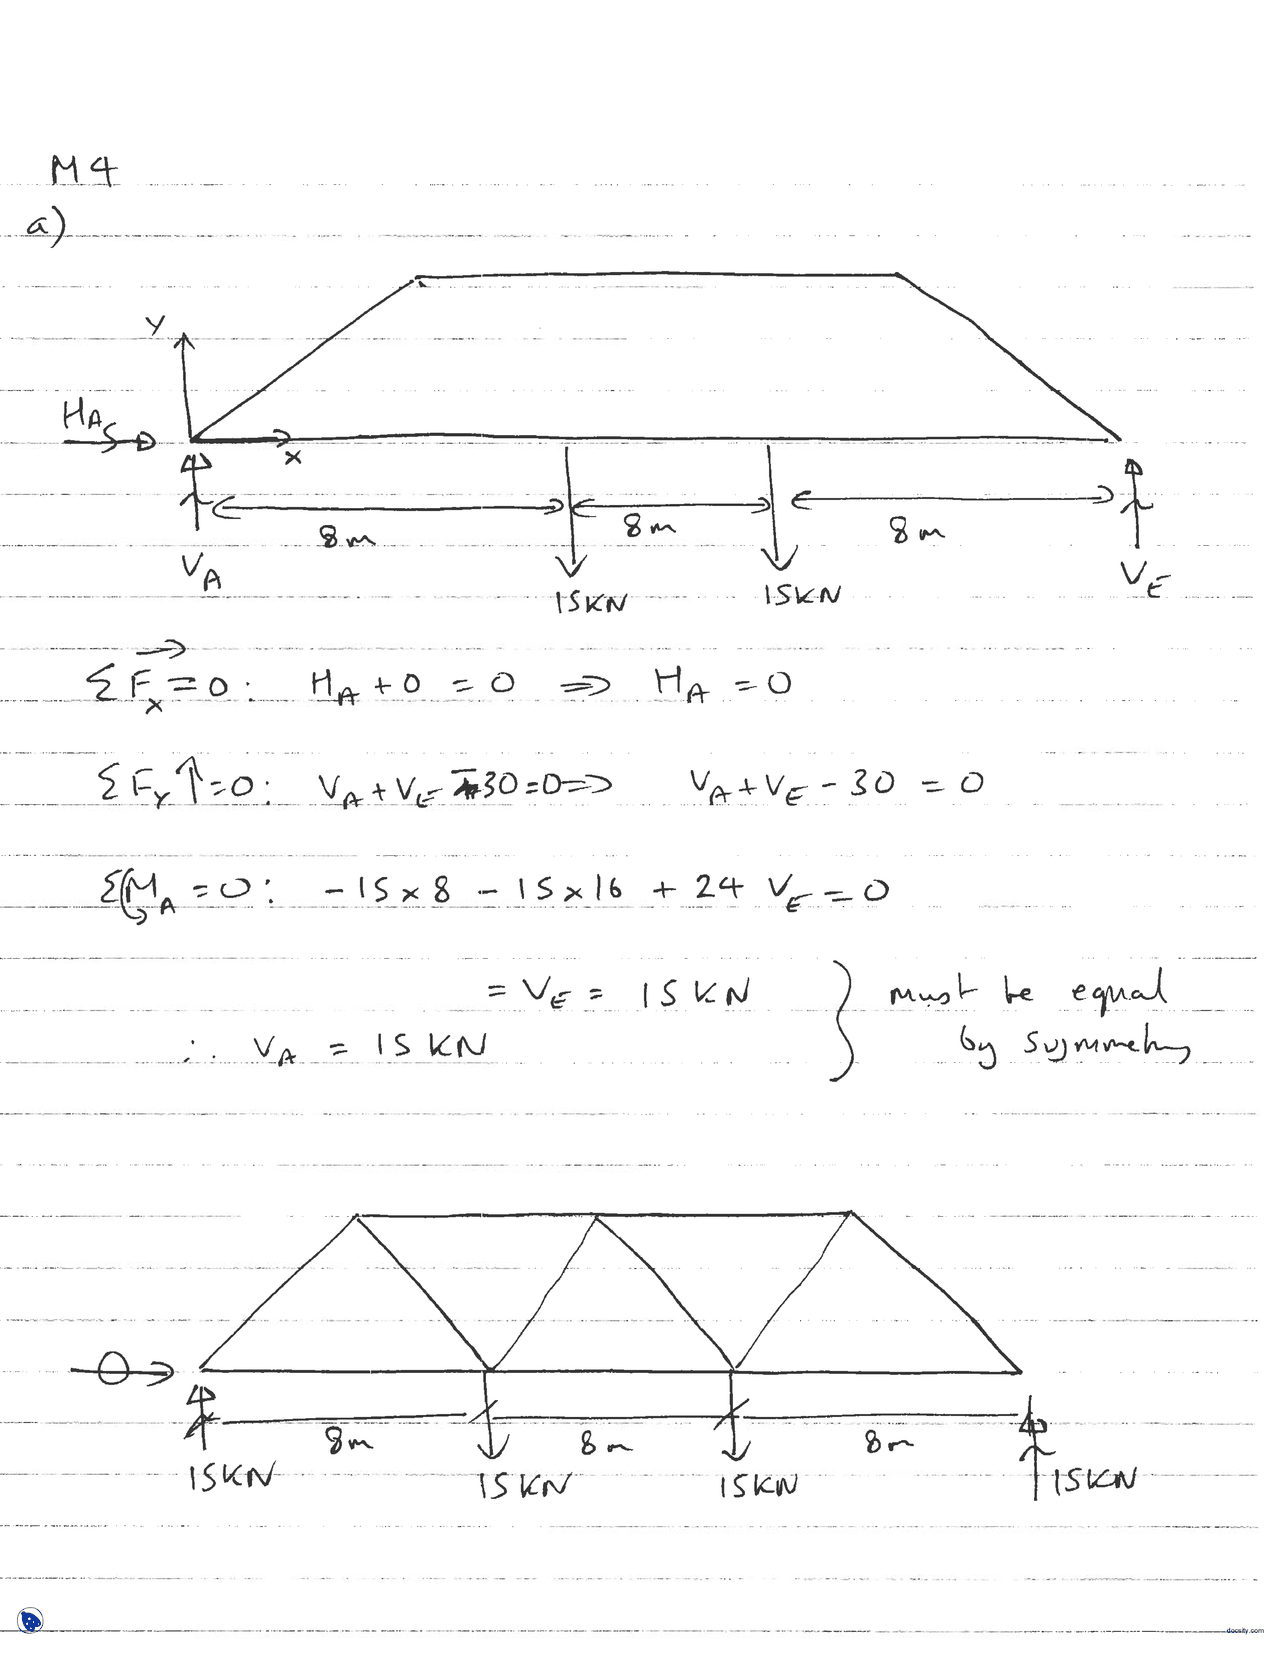 M4
a)
y
HA
x
8m
8m
8m
VA
15KN
15KN
VE
Σ Fx→ = 0: HA + 0 = 0 ⇒ HA = 0
Σ Fy ↑ = 0: VA + VE - 30 = 0 ⇒ VA + VE - 30 = 0
Σ MA = 0: -15 x 8 - 15 x 16 + 24 VE = 0
= VE = 15 KN } must be equal
∴ VA = 15 KN by symmetry
0
8m
8m
8m
15KN
15KN
15KN
15KN
docsity.com